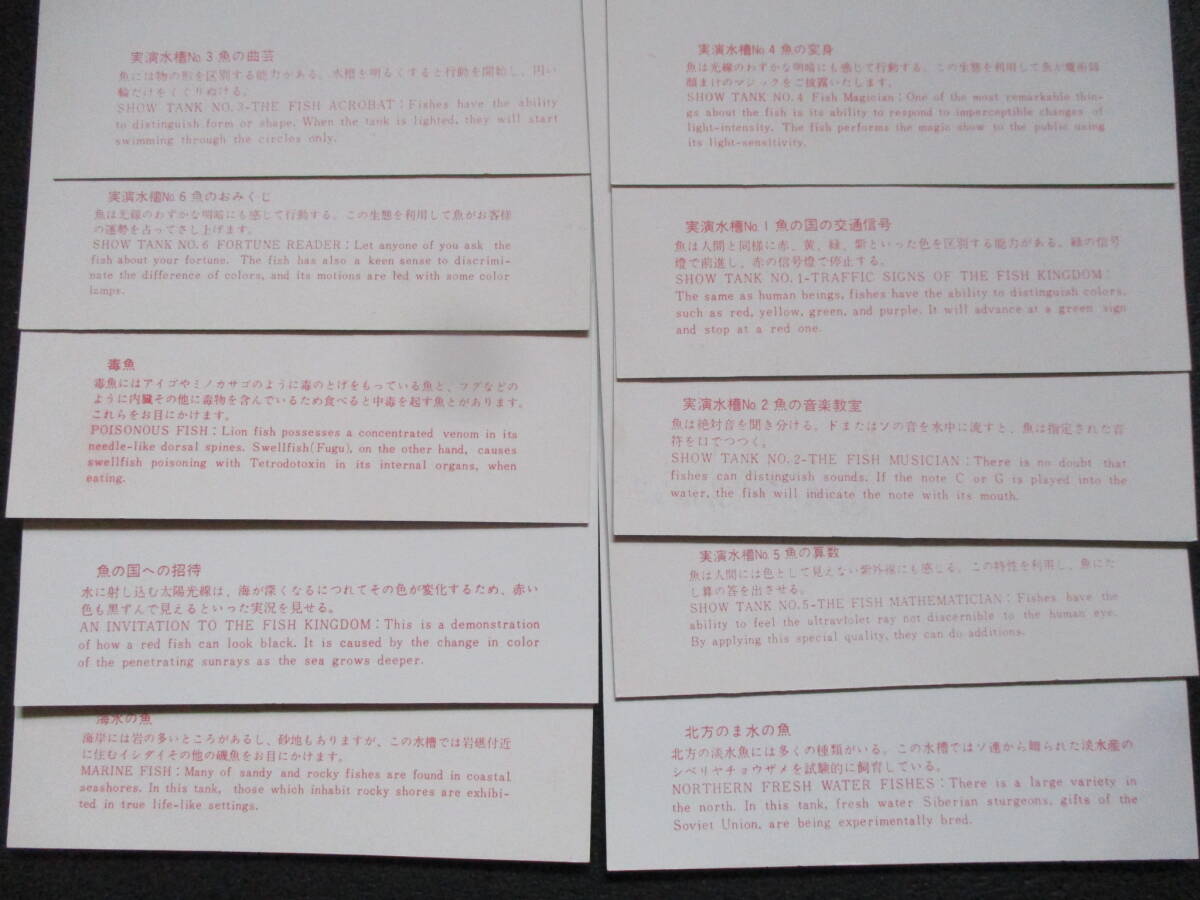 実演水槽No.3 魚の曲芸
魚には物の形を区別する能力がある。水槽を明るくすると行動を開始し、円い
輪だけをくぐりぬける。
SHOW TANK NO. 3-THE FISH ACROBAT : Fishes have the ability
to distinguish form or shape. When the tank is lighted, they will start
swimming through the circles only.
実演水槽No.6 魚のおみくじ
魚は光線のわずかな明暗にも感じて行動する。この生態を利用して魚がお客様
の運勢を占ってさし上げます。
SHOW TANK NO. 6 FORTUNE READER : Let anyone of you ask the
fish about your fortune. The fish has also a keen sense to discrimi-
nate the difference of colors, and its motions are led with some color
lamps.
毒魚
毒魚にはアイゴやミノカサゴのように毒のとげをもっている魚と、フグなどの
ように内臓その他に毒物を含んでいるため食べると中毒を起す魚とがあります。
これらをお目にかけます。
POISONOUS FISH : Lion fish possesses a concentrated venom in its
needle-like dorsal spines. Swellfish(Fugu), on the other hand, causes
swellfish poisoning with Tetrodotoxin in its internal organs, when
eating.
魚の国への招待
水に射し込む太陽光線は、海が深くなるにつれてその色が変化するため、赤い
色も黒ずんで見えるといった実況を見せる。
AN INVITATION TO THE FISH KINGDOM : This is a demonstration
of how a red fish can look black. It is caused by the change in color
of the penetrating sunrays as the sea grows deeper.
海水の魚
海岸には岩の多いところがあるし、砂地もありますが、この水槽では岩礁付近
に住むイシダイその他の磯魚をお目にかけます。
MARINE FISH : Many of sandy and rocky fishes are found in coastal
seashores. In this tank, those which inhabit rocky shores are exhibi-
ted in true life-like settings.
実演水槽No.4 魚の変身
魚は光線のわずかな明暗にも感じて行動する。この生態を利用して魚が魔術師
顔まけのマジックをご披露いたします。
SHOW TANK NO. 4 Fish Magician : One of the most remarkable thin-
gs about the fish is its ability to respond to imperceptible changes of
light-intensity. The fish performs the magic show to the public using
its light-sensitivity.
実演水槽No.1 魚の国の交通信号
魚は人間と同様に赤、黄、緑、紫といった色を区別する能力がある。緑の信号
燈で前進し、赤の信号燈で停止する。
SHOW TANK NO. 1-TRAFFIC SIGNS OF THE FISH KINGDOM :
The same as human beings, fishes have the ability to distinguish colors,
such as red, yellow, green, and purple. It will advance at a green sign
and stop at a red one.
実演水槽No.2 魚の音楽教室
魚は絶対音を聞き分ける。ドまたはソの音を水中に流すと、魚は指定された音
符を口でつつく。
SHOW TANK NO. 2-THE FISH MUSICIAN : There is no doubt that
fishes can distinguish sounds. If the note C or G is played into the
water, the fish will indicate the note with its mouth.
実演水槽No.5 魚の算数
魚は人間には色として見えない紫外線にも感じる。この特性を利用し、魚にた
し算の答を出させる。
SHOW TANK NO. 5-THE FISH MATHEMATICIAN : Fishes have the
ability to feel the ultravlolet ray not discernible to the human eye.
By applying this special quality, they can do additions.
北方のま水の魚
北方の淡水魚には多くの種類がいる。この水槽ではソ連から贈られた淡水産の
シベリヤチョウザメを試験的に飼育している。
NORTHERN FRESH WATER FISHES : There is a large variety in
the north. In this tank, fresh water Siberian sturgeons, gifts of the
Soviet Union, are being experimentally bred.